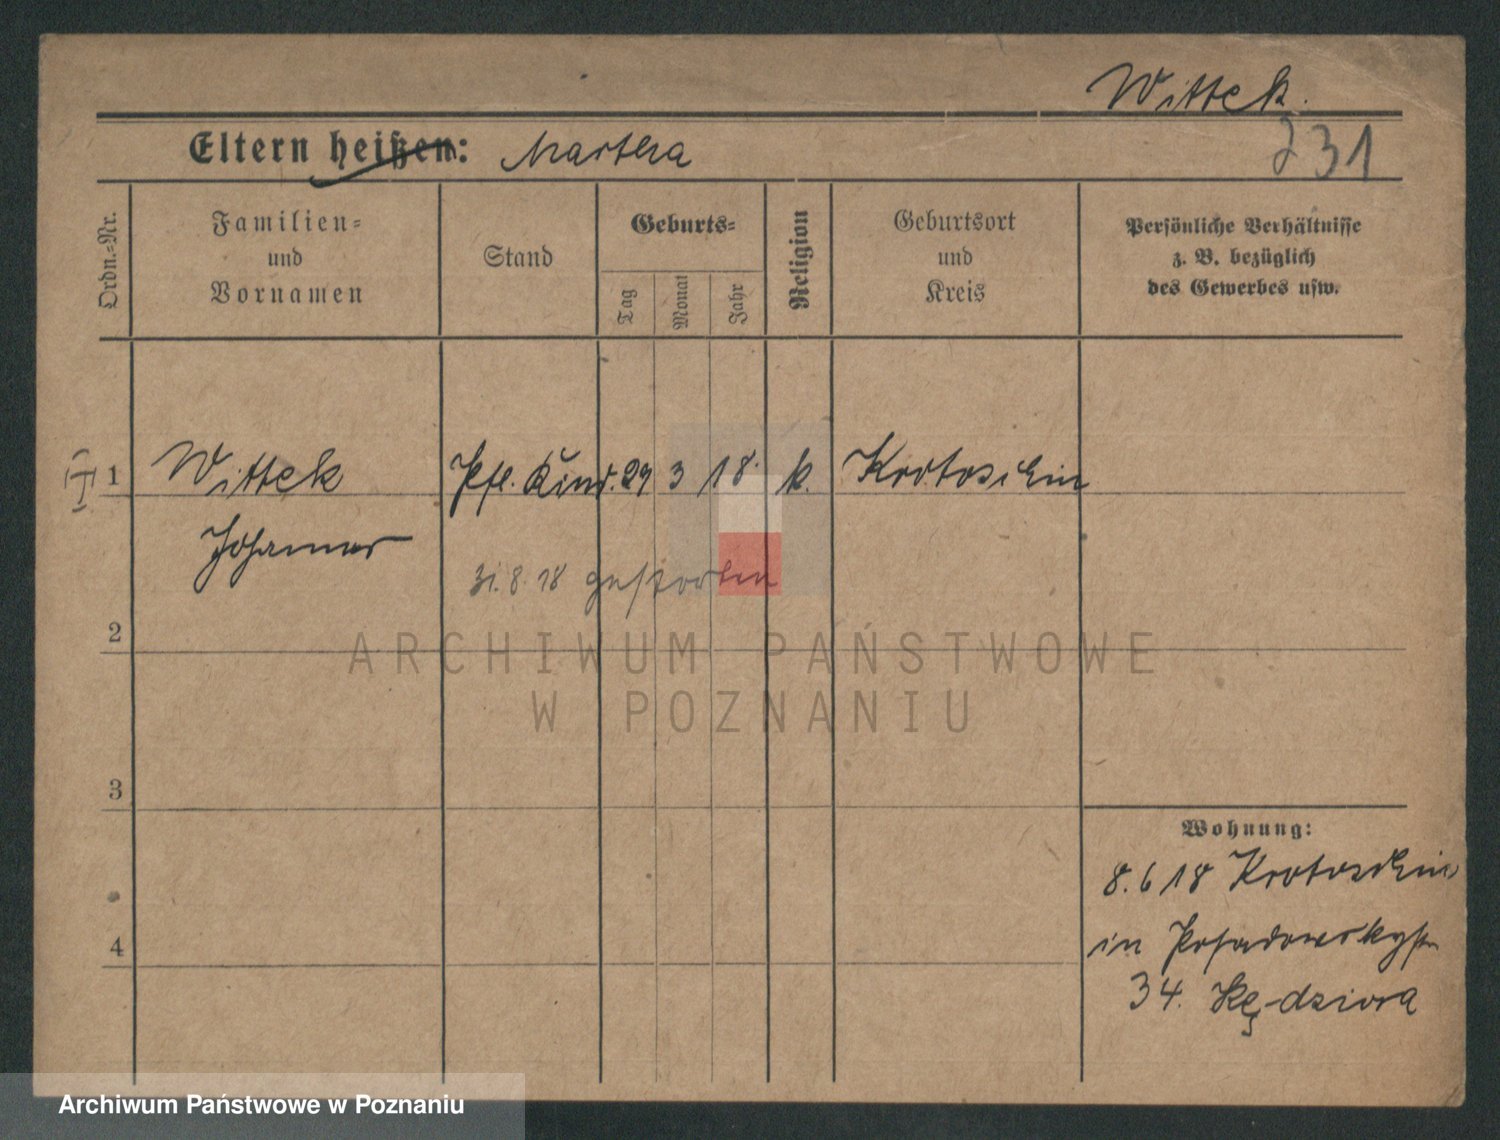 Wittek.
Eltern heißen: Martha
231
Ordn.-Nr.
Familien-
und
Vornamen
Stand
Geburts-
Tag
Monat
Jahr
Religion
Geburtsort
und
Kreis
Persönliche Verhältnisse
z. B. bezüglich
des Gewerbes usw.
1 Wittek Pfl. Kind. 29 3 18. k. Krotoschin
Johannes
31.8.18 gestorben
2
ARCHIWUM PAŃSTWOWE
W POZNANIU
3
Wohnung:
8.6 18 Krotoschin
4 in Posadowskystr
34. Kędziora
Archiwum Państwowe w Poznaniu